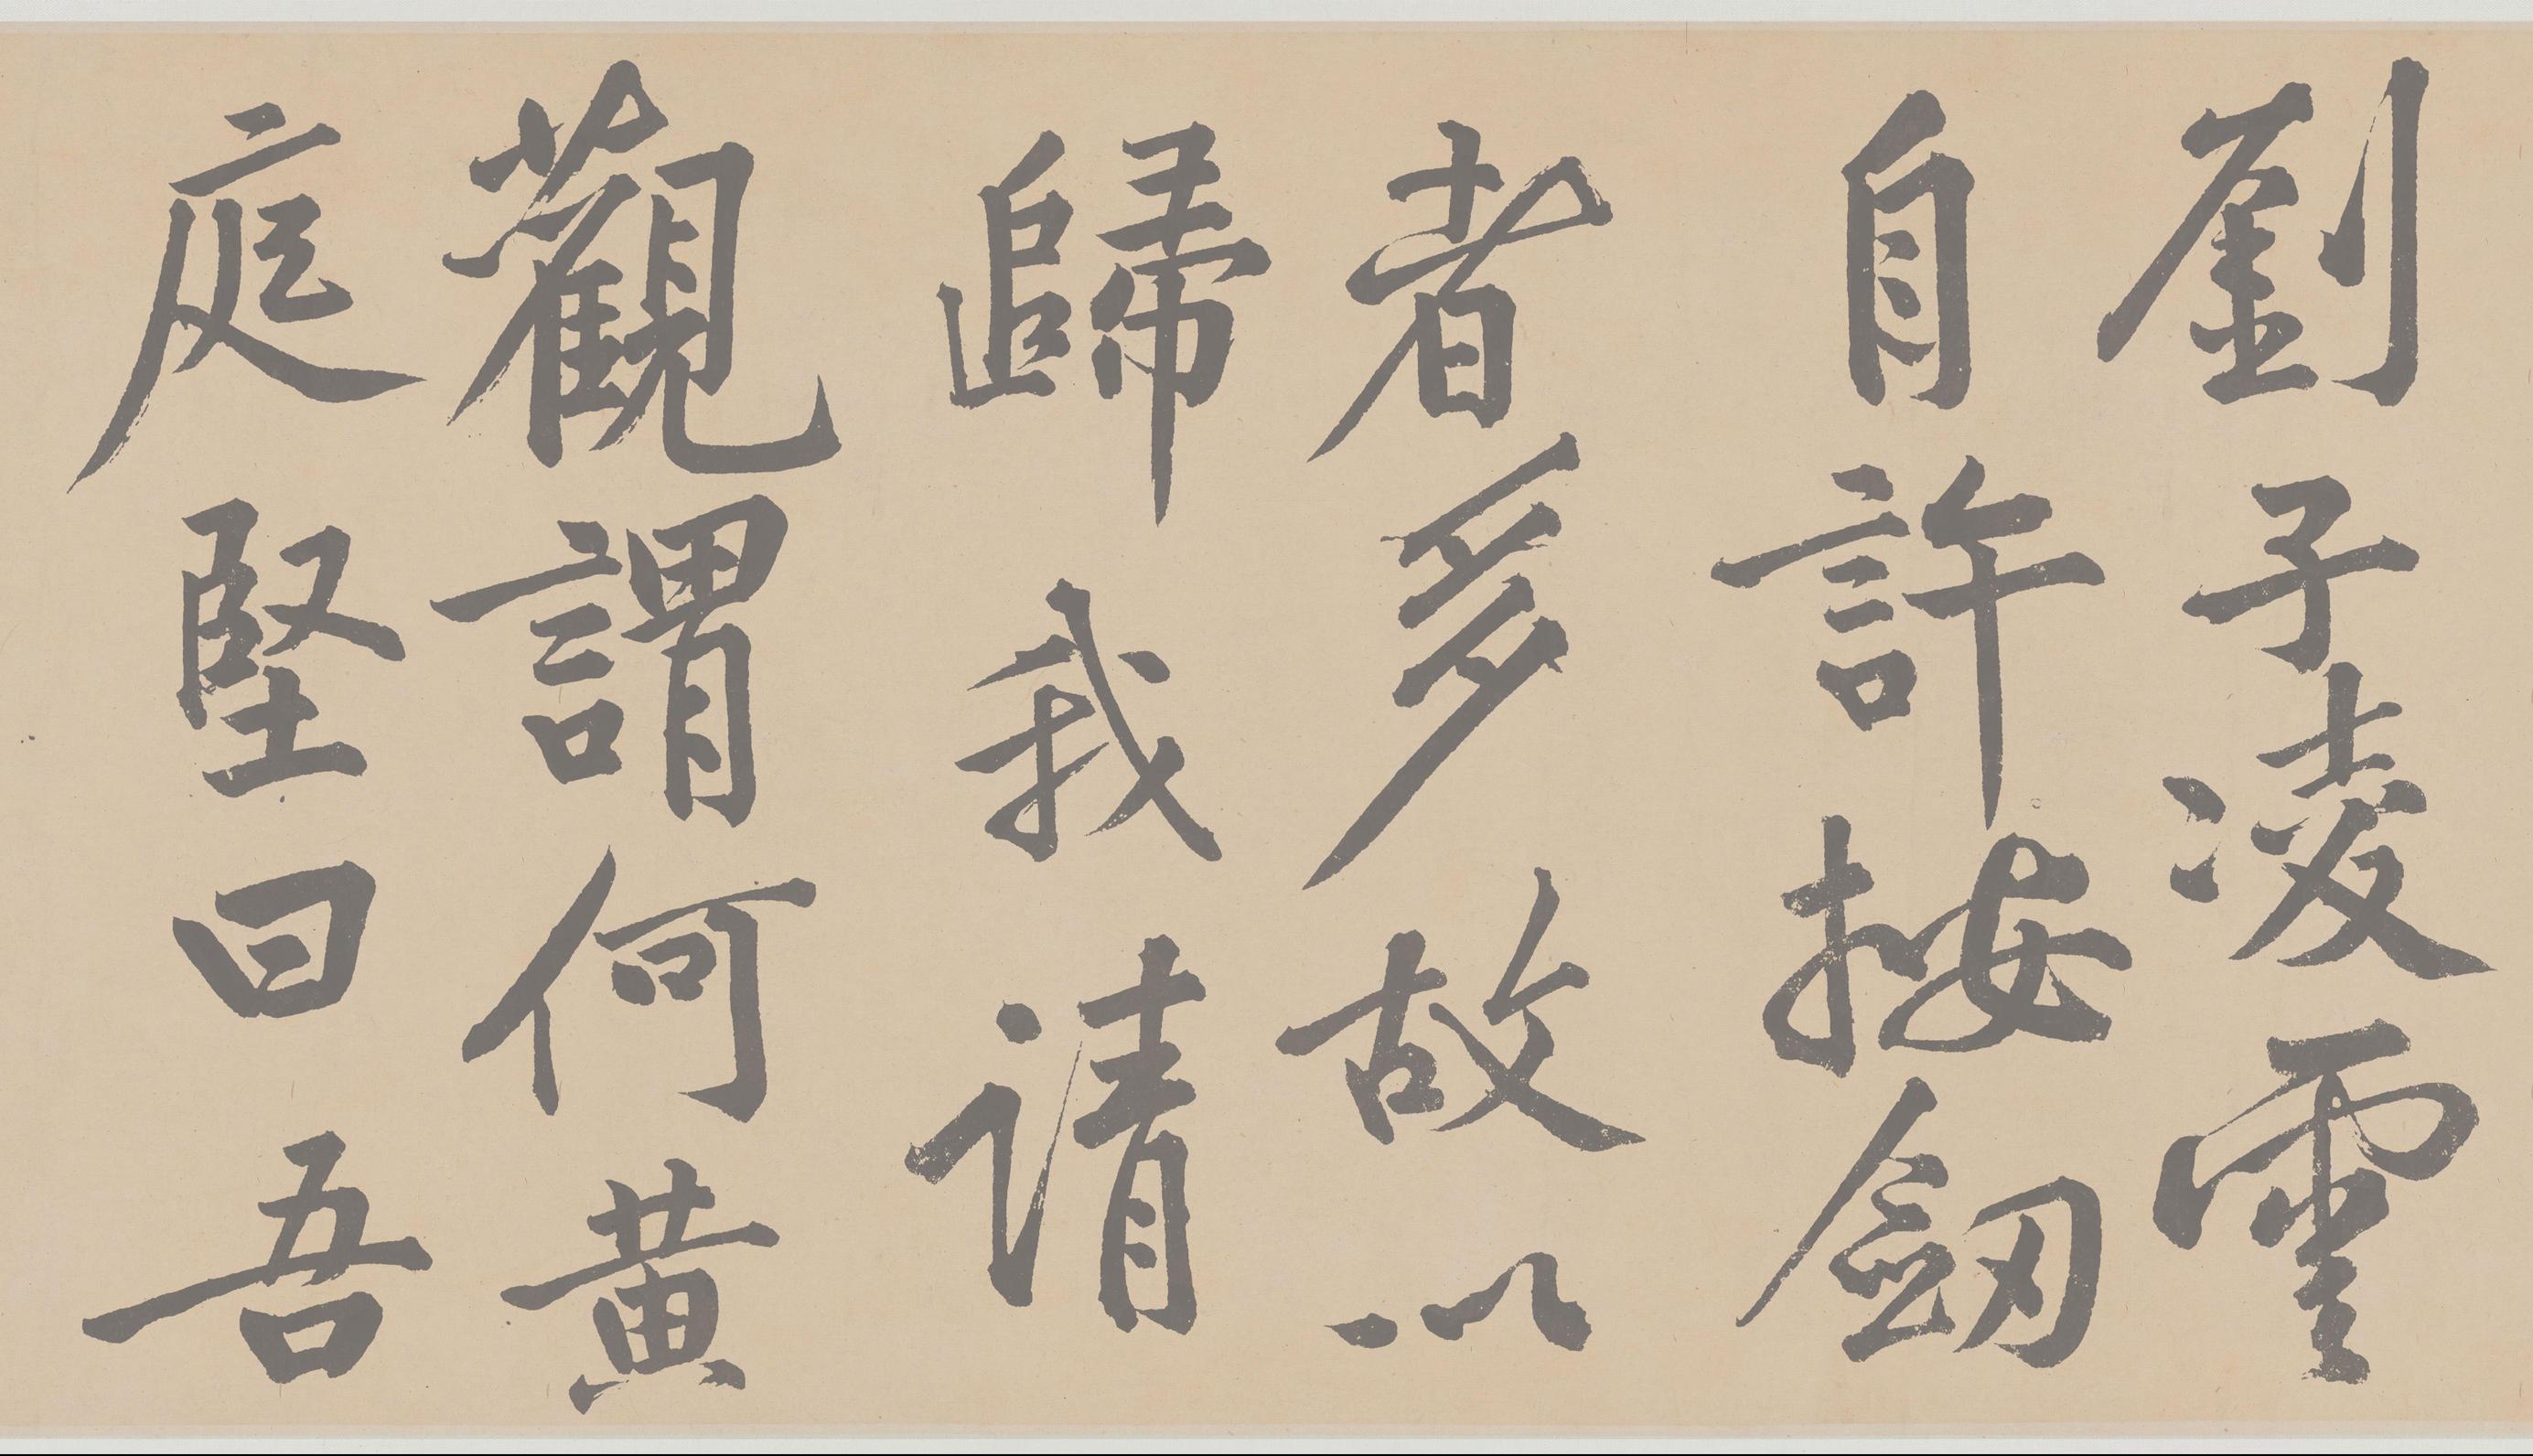 劉子凌雲
自許按劒
者多故以
歸我請
觀謂何黄
庭堅曰吾